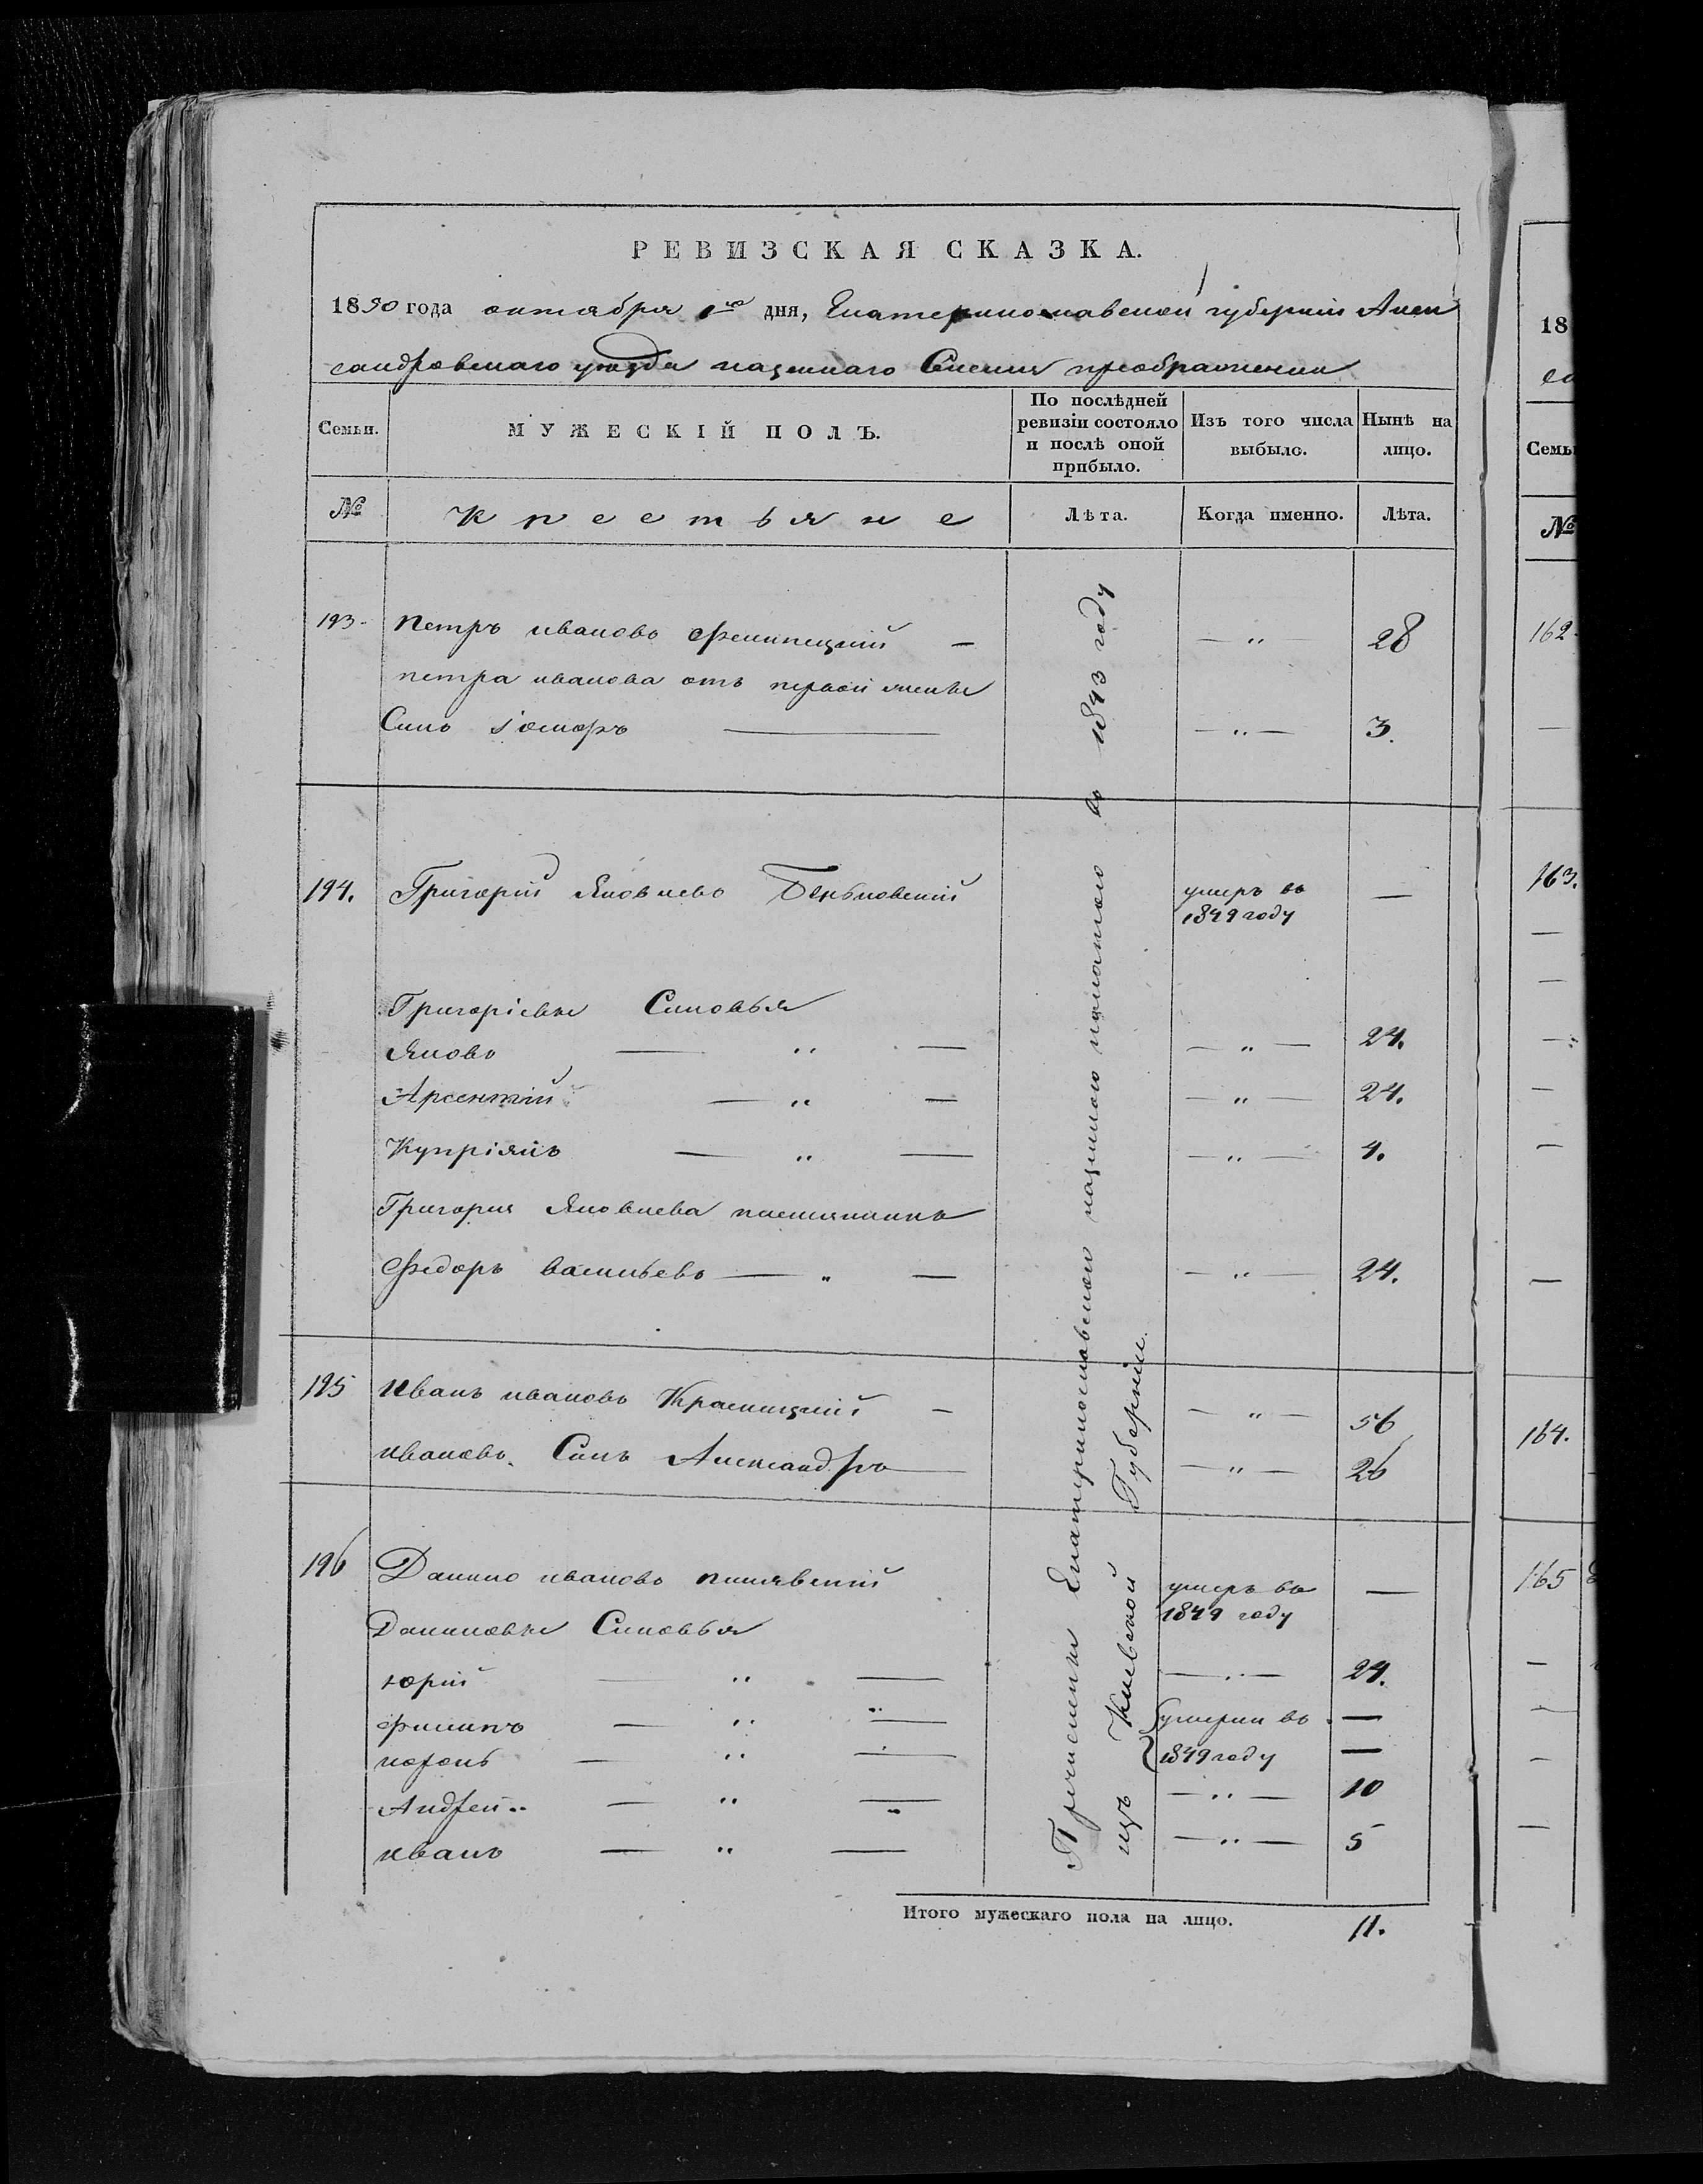 РЕВИЗСКАЯ СКАЗКА.
1850 года октября 1го дня, Екатеринославской губерніи Алек
сандровскаго уезда казеннаго Селения преображенки
Семьи.
МУЖЕСКІЙ ПОЛЪ.
По послѣдней ревизіи состояло и послѣ оной прибыло.
Изъ того числа выбыло.
Нынѣ на лицо.
№
Крестьяне
Лѣта.
Когда именно.
Лѣта.
193. Петръ ивановъ — — " 28
петра иванова отъ первой жены
Сынъ — — " — 3.
194. Григорій Яковлевъ умеръ въ 1849 году —
Григоріевы Сыновья
Яковъ — " — — " — 24.
Арсентій — " — — " — 24.
Купріянъ — " — — " — 4.
Григория Яковлева племянникъ
Федоръ васильевъ — " — — " — 24.
195 Иванъ ивановъ Красицкий — — " — 56
ивановъ Сынъ Александръ — — " — 26
196 Данило ивановъ умеръ въ 1849 году —
Даниловы Сыновья
юрій — " — — " — 24.
филипъ — " — умерли въ —
— " — 1849 году —
Андрей — " — — " — 10
иванъ — " — — " — 5
Причислены Екатеринославской казенною палатою въ 1843 году
изъ Киевской Губерніи.
Итого мужескаго пола на лицо. 11.
18
Семьи
№
162.
163.
164.
165